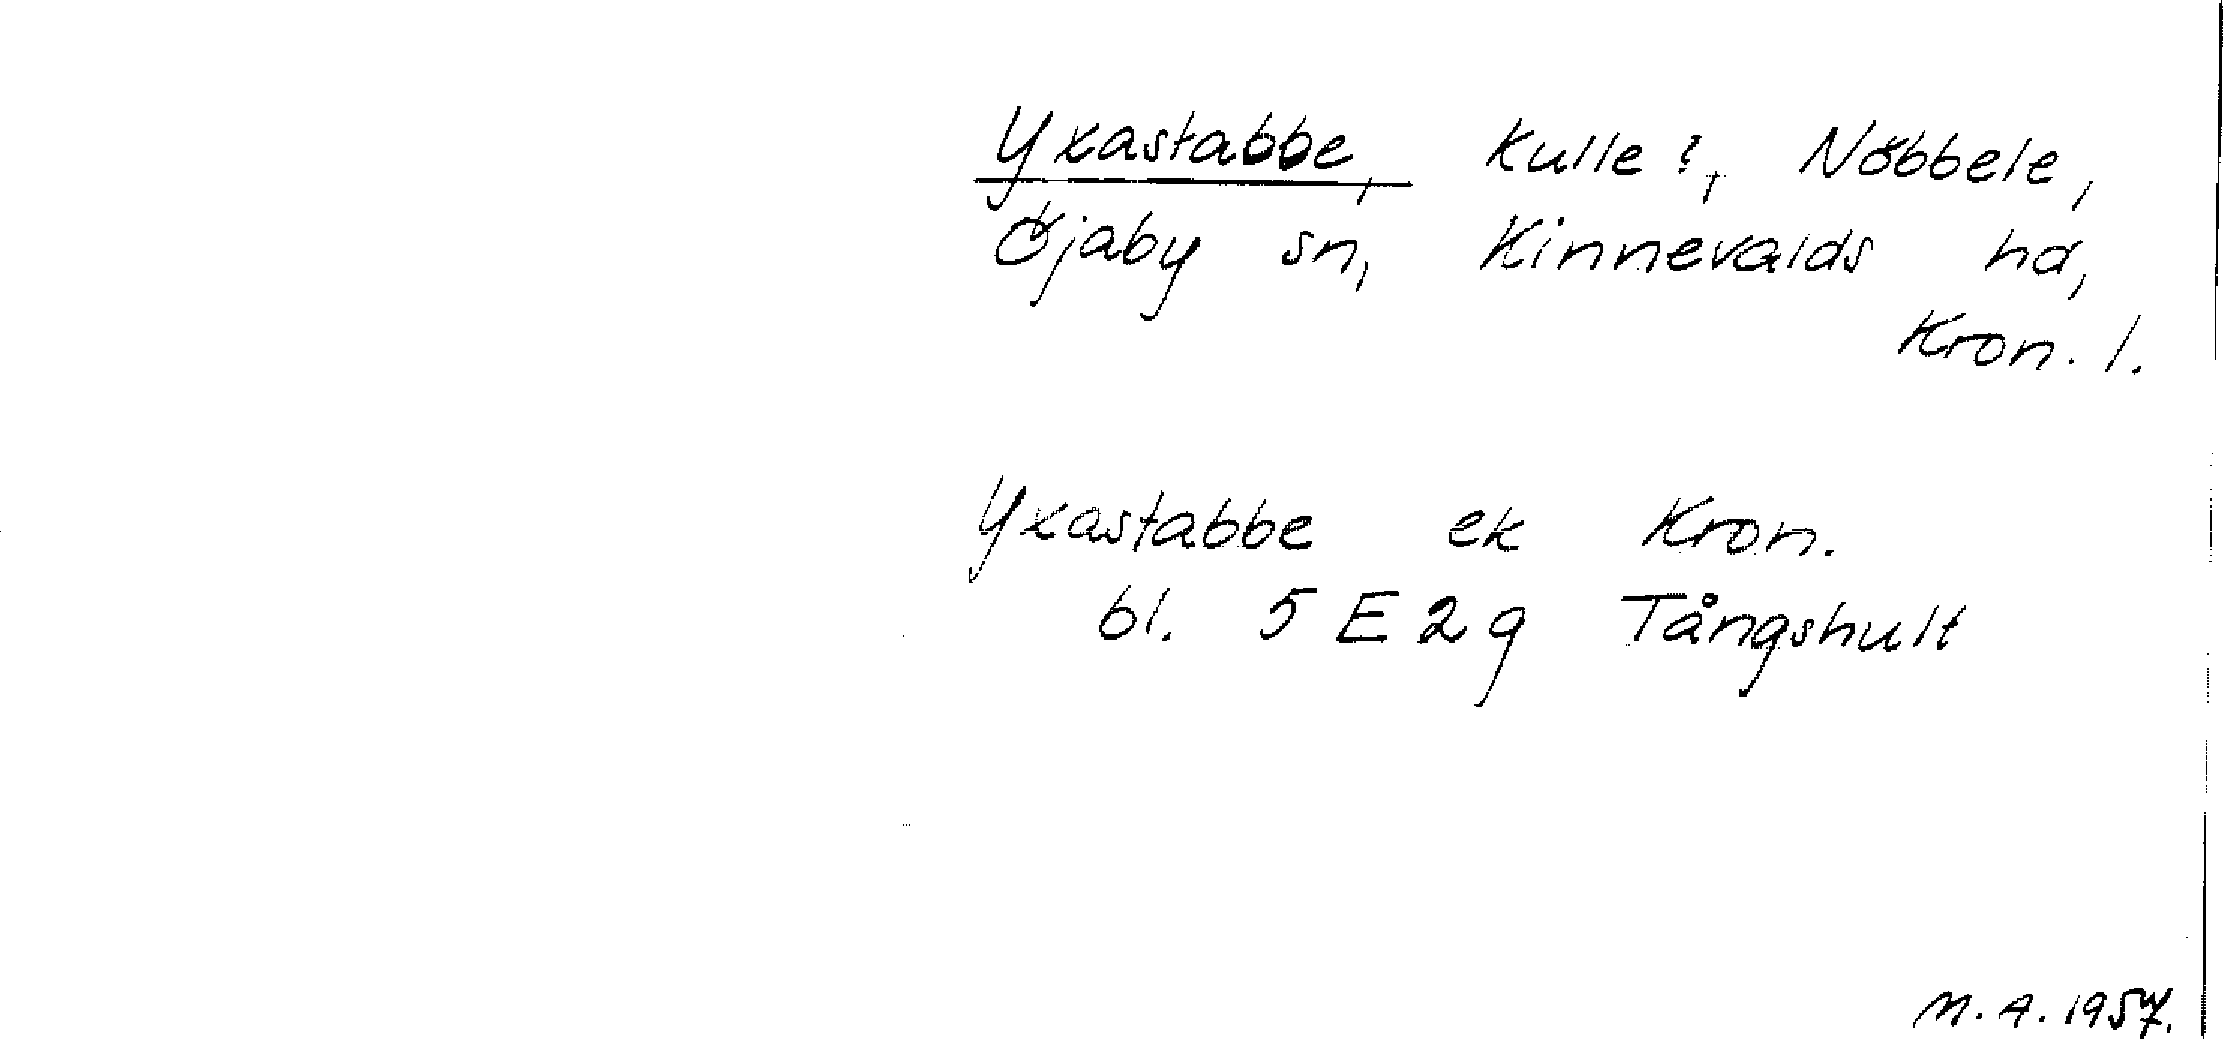 Yxastabbe, Kulle?, Nöbbele,
Öjaby sn, Kinnevalds hd,
Kron. l.
Yxastabbe ek Kron.
bl. 5 E 2 g Tångshult
M. A. 1957.